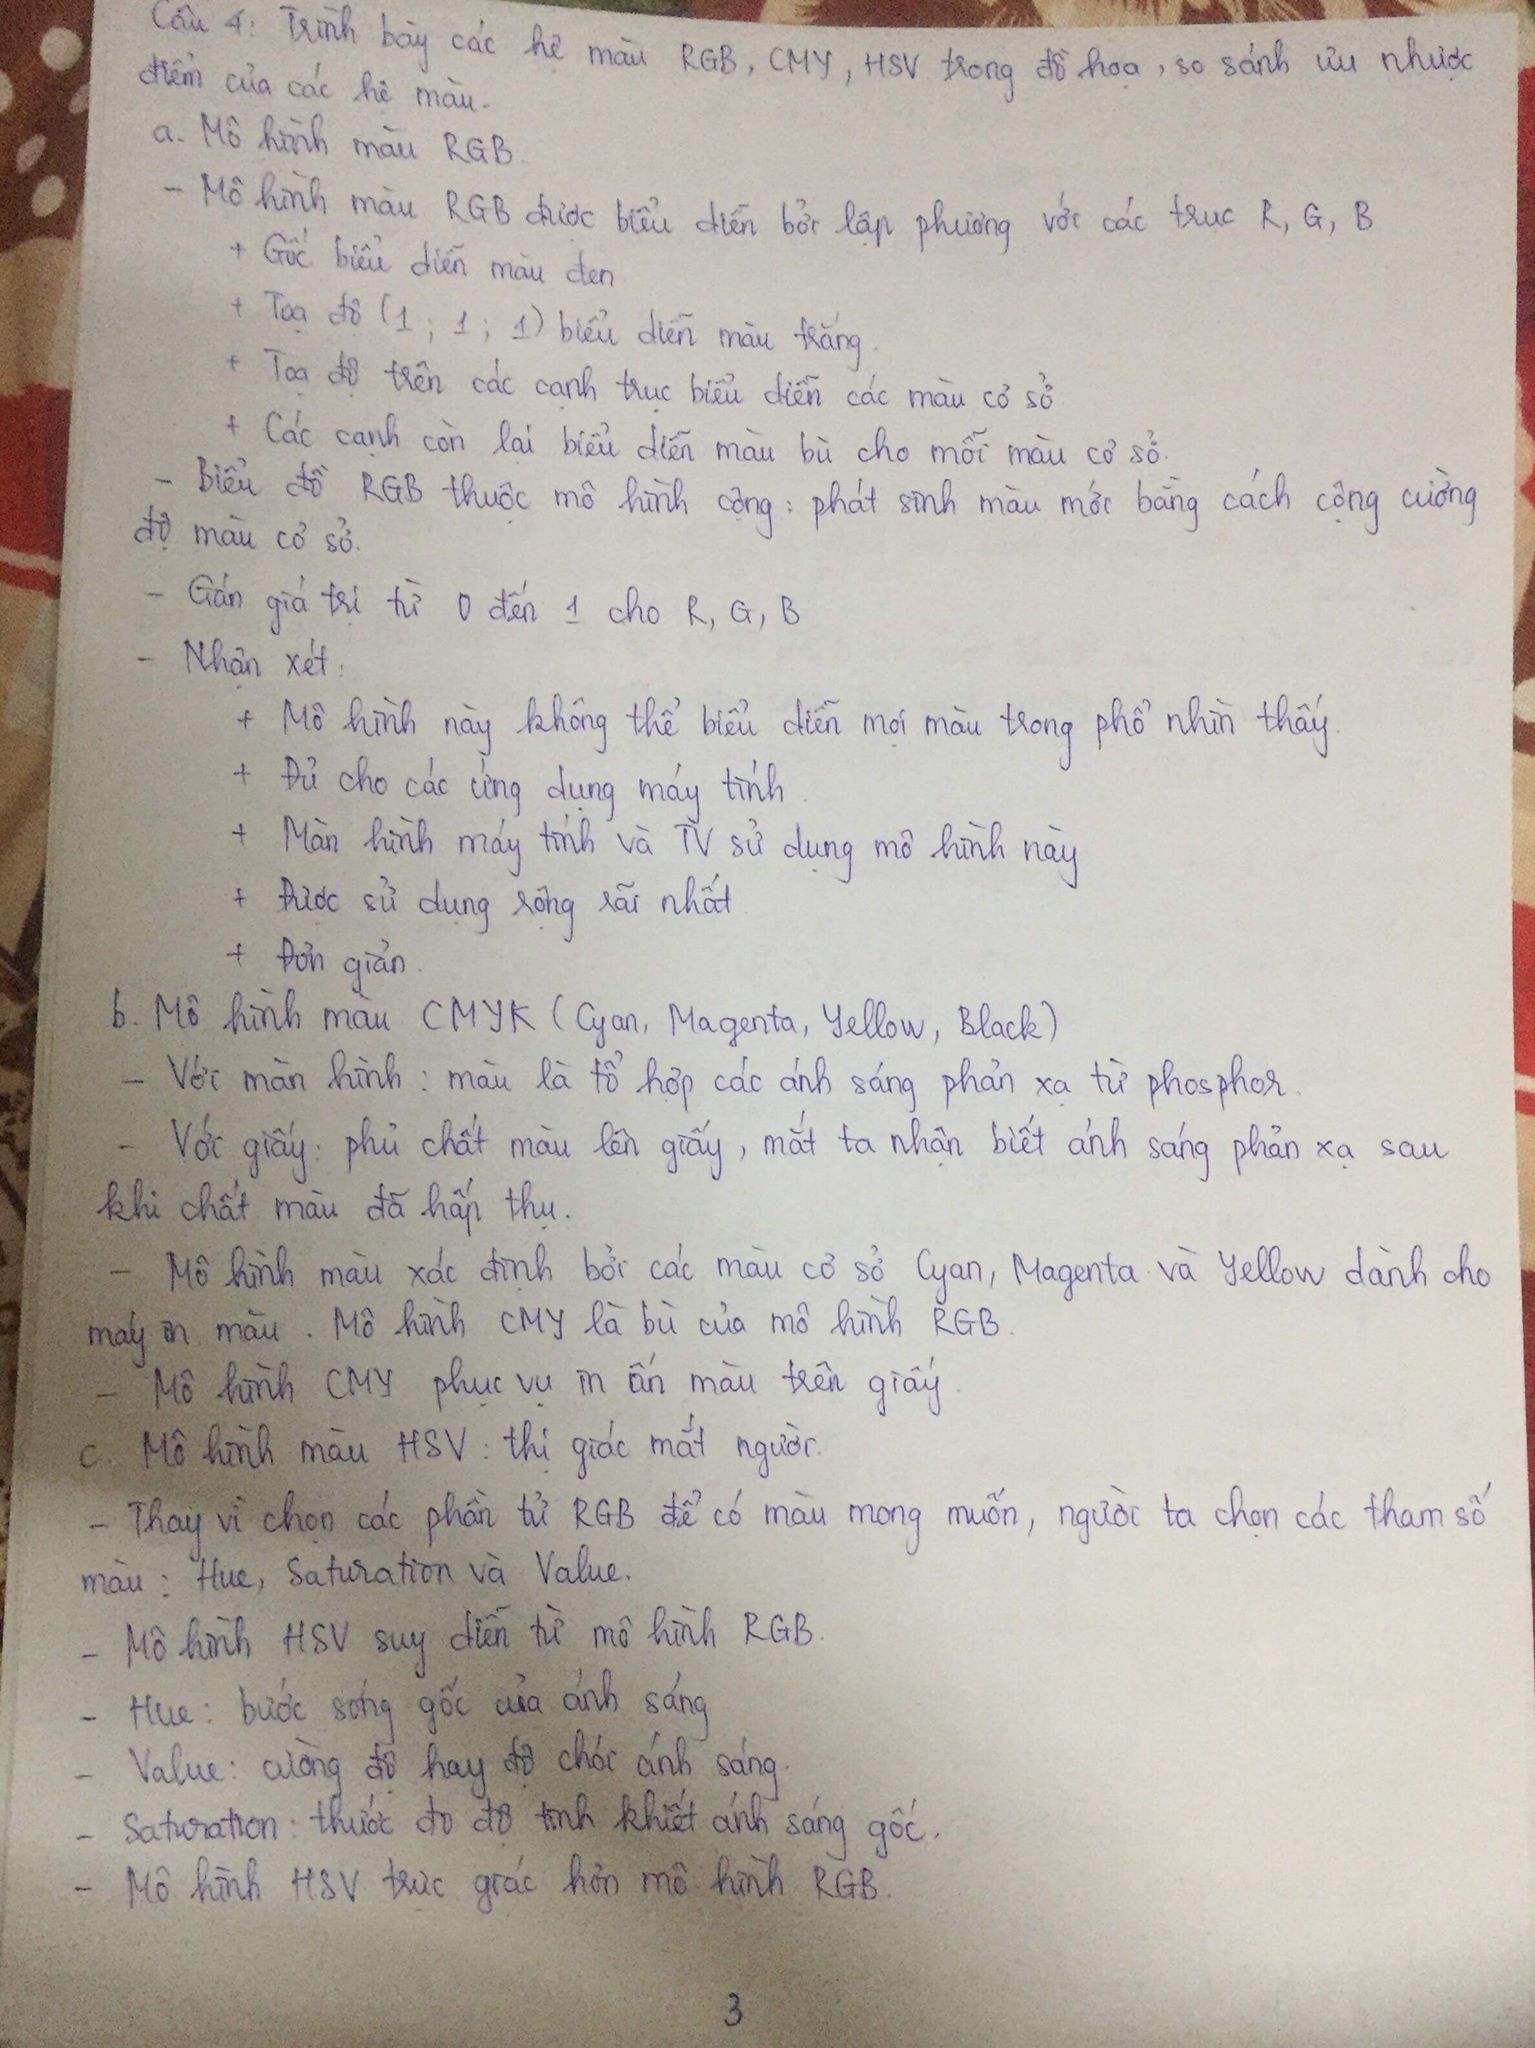 Câu 4: Trình bày các hệ màu RGB, CMY, HSV trong đồ họa, so sánh ưu nhược
điểm của các hệ màu.
a. Mô hình màu RGB
- Mô hình màu RGB được biểu diễn bởi lập phương với các trục R, G, B
+ Gốc biểu diễn màu đen
+ Toạ độ (1; 1; 1) biểu diễn màu trắng.
+ Toạ độ trên các cạnh trục biểu diễn các màu cơ sở
+ Các cạnh còn lại biểu diễn màu bù cho mỗi màu cơ sở.
- Biểu đồ RGB thuộc mô hình cộng: phát sinh màu mới bằng cách cộng cường
độ màu cơ sở.
- Gán giá trị từ 0 đến 1 cho R, G, B
- Nhận xét:
+ Mô hình này không thể biểu diễn mọi màu trong phổ nhìn thấy.
+ Đủ cho các ứng dụng máy tính.
+ Màn hình máy tính và TV sử dụng mô hình này
+ Được sử dụng rộng rãi nhất
+ Đơn giản.
b. Mô hình màu CMYK (Cyan, Magenta, Yellow, Black)
- Với màn hình: màu là tổ hợp các ánh sáng phản xạ từ phosphor.
- Với giấy: phủ chất màu lên giấy, mắt ta nhận biết ánh sáng phản xạ sau
khi chất màu đã hấp thụ.
- Mô hình màu xác định bởi các màu cơ sở Cyan, Magenta và Yellow dành cho
máy in màu. Mô hình CMY là bù của mô hình RGB.
- Mô hình CMY phục vụ in ấn màu trên giấy.
c. Mô hình màu HSV: thị giác mắt người.
- Thay vì chọn các phần tử RGB để có màu mong muốn, người ta chọn các tham số
màu: Hue, Saturation và Value.
- Mô hình HSV suy diễn từ mô hình RGB.
- Hue: bước sóng gốc của ánh sáng
- Value: cường độ hay độ chói ánh sáng.
- Saturation: thước đo độ tinh khiết ánh sáng gốc.
- Mô hình HSV trực giác hơn mô hình RGB.
3